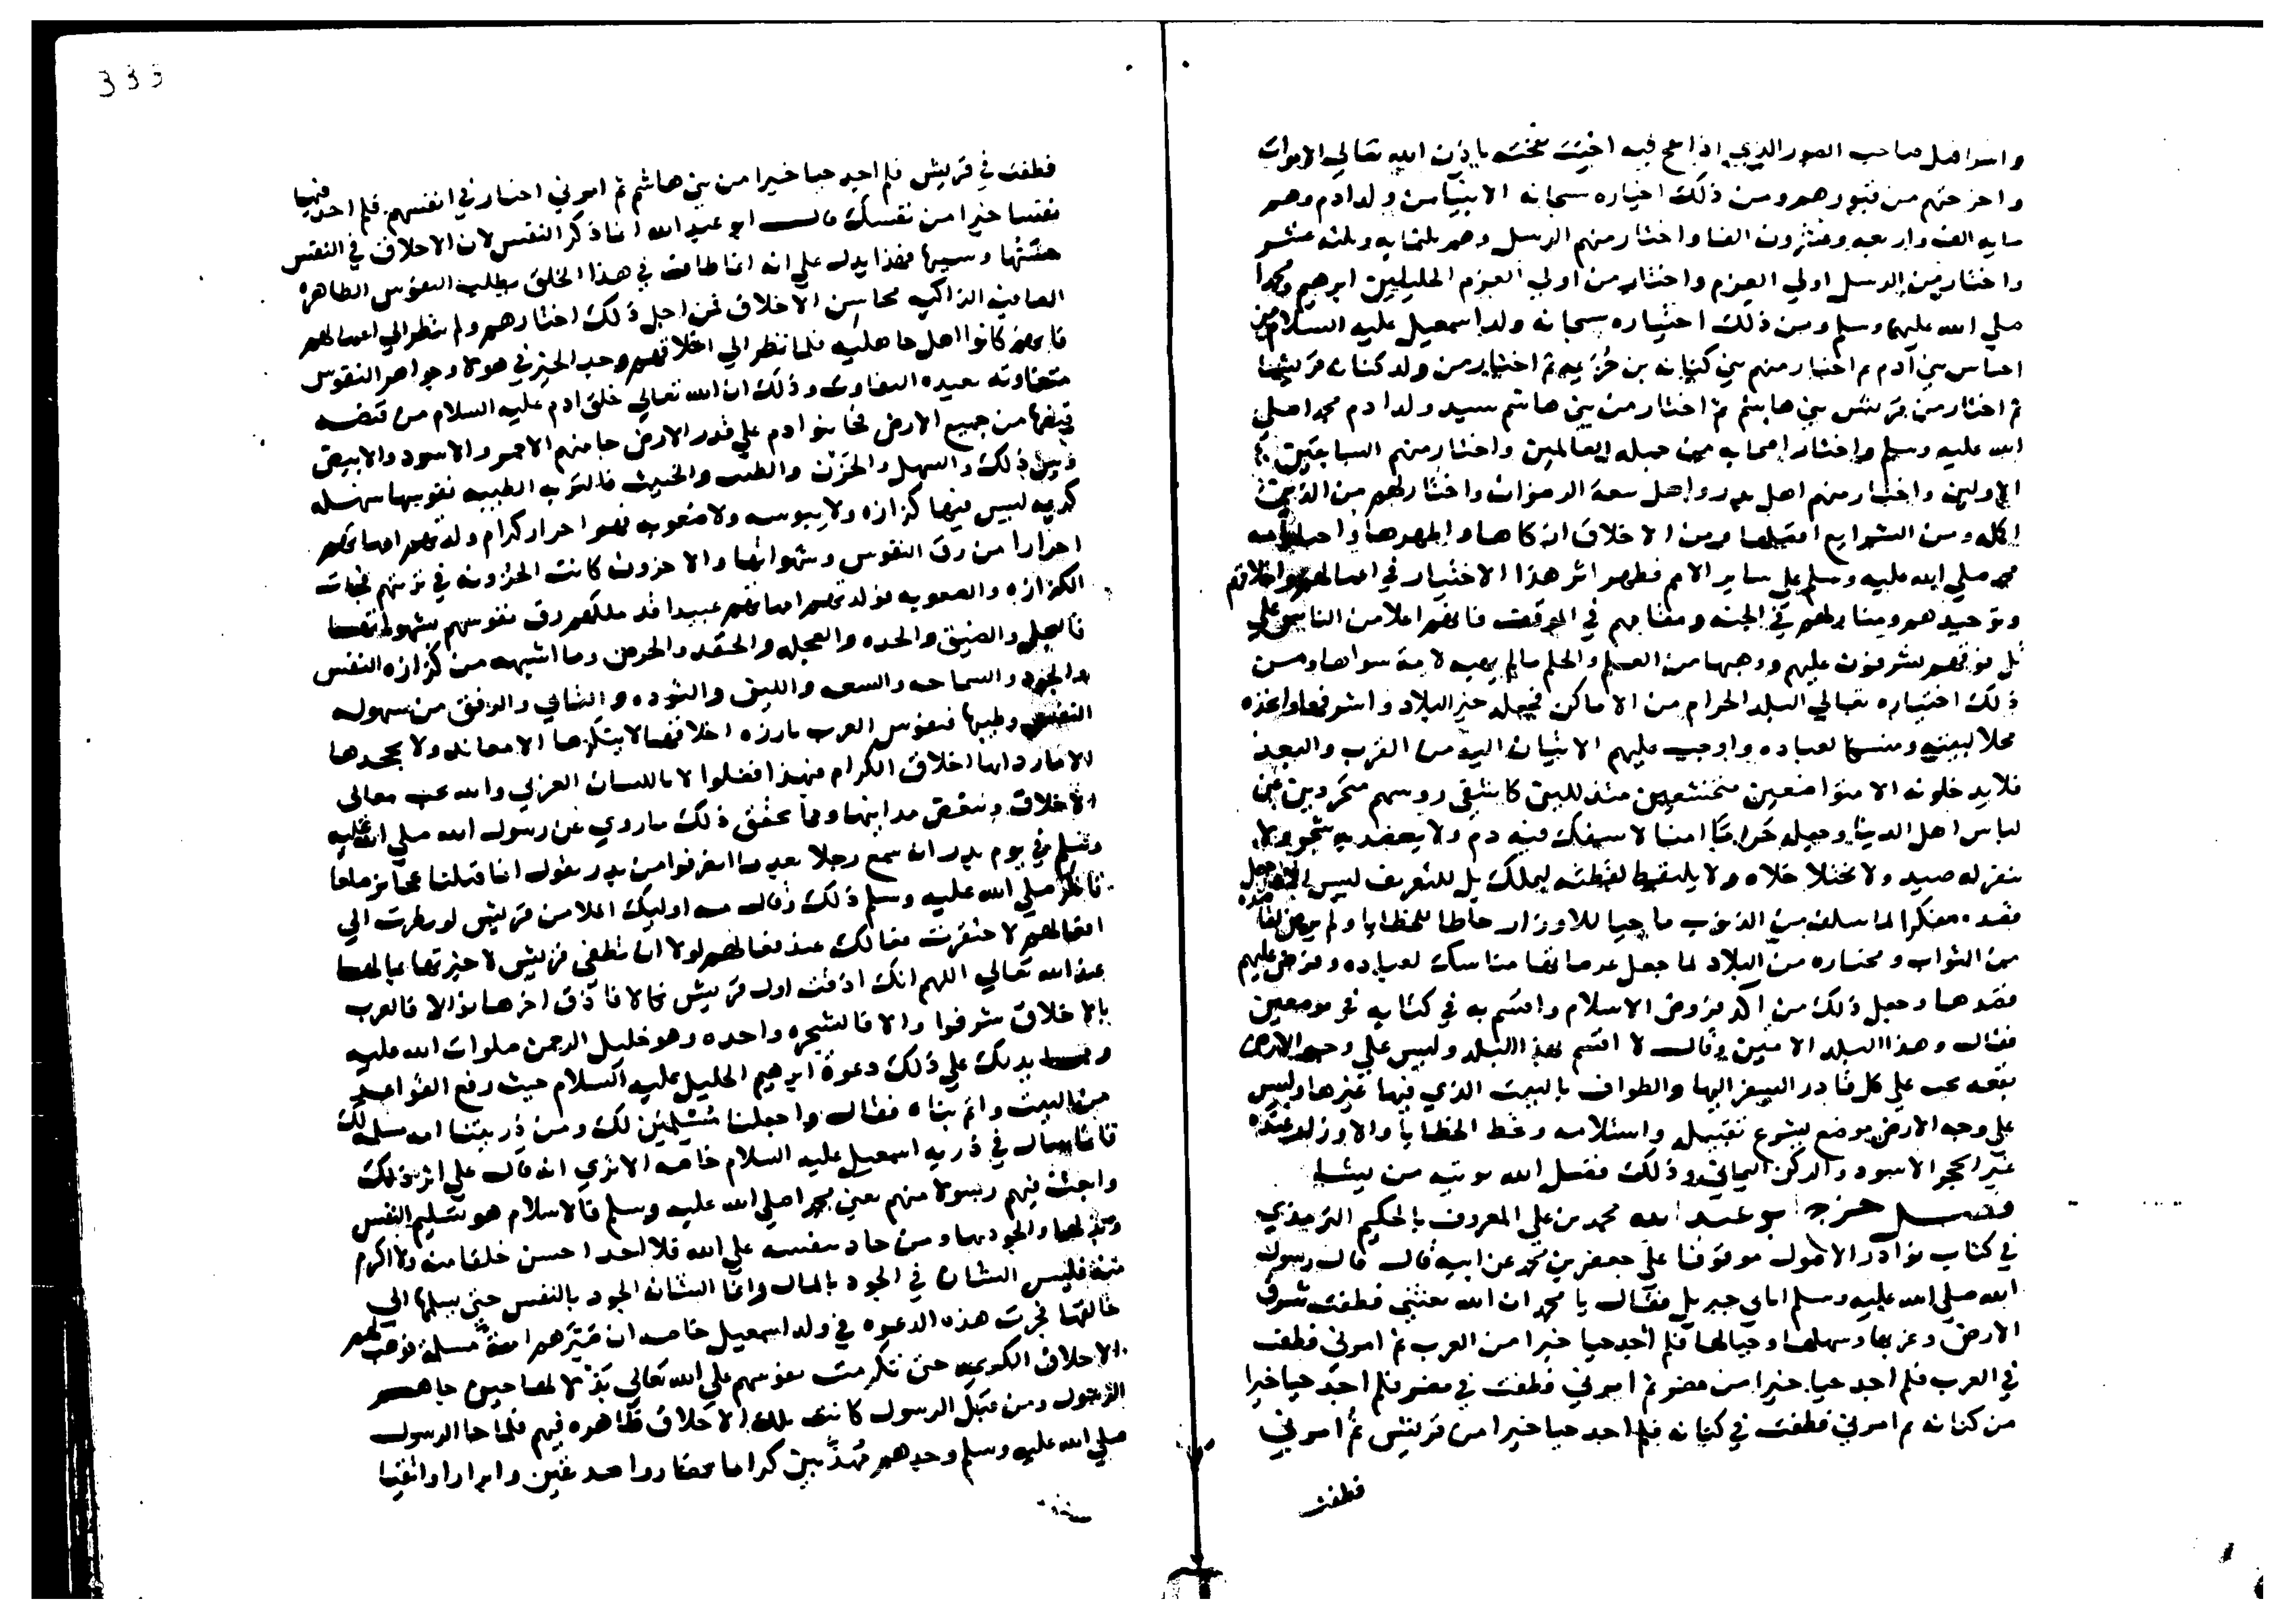 واسرافيل صاحب الصور الذي اذا نفخ فيه احيت نفخته باذن الله تعالي الاموات
واخرجتهم من قبورهم ومن ذلك اختياره سبحانه الانبيا من ولد ادم وهم
مايه الف واربعه وعشرون الفا واختار منهم الرسل وهم ثلثمايه وثلثه عشر
واختار من الرسل اولي العزم واختار من اولي العزم الخليلين ابرهيم ومحمدا
صلي الله عليهما وسلم ومن ذلك اختياره سبحانه ولد اسمعيل عليه السلام من
اجناس بني آدم ثم اختار منهم بني كنانه بن خزيمه ثم اختار من ولد كنانه قريشا
ثم اختار من قريش بني هاشم ثم اختار من بني هاشم سيد ولد ادم محمدا صلي
الله عليه وسلم واختار اصحابه من جمله العالمين واختار منهم السابقين
الاولين واختار منهم اهل بدر واهل بيعة الرضوان واختار لهم من الدين
اكمله ومن الشرايع افضلها ومن الاخلاق ازكاها واطهرها واختار امه
محمد صلي الله عليه وسلم علي ساير الامم فظهر اثر هذا الاختيار في اعمالهم واخلاقهم
وتوحيدهم ومنازلهم في الجنه ومقامهم في الموقف فانهم اعلا من الناس علي
تل فوقهم يشرفون عليهم ووهبها من العلم والحلم مالم يهبه لامة سواها ومن
ذلك اختياره تعالي البلد الحرام من الاماكن فجعله خير البلاد واشرفها واتخذه
محلا لبيته ومنسكا لعباده واوجب عليهم الاتيان اليه من القرب والبعد
فلا يدخلونه الا متواضعين متخشعين كاشفي روسهم متجردين عن
لباس اهل الدنيا وجعله حراما آمنا لا يسفك فيه دم ولا يعضد به شجر ولا
ينفر له صيد ولا يختلا خلاه ولا يلتقط لقطته لتملك بل للتعريف ليس الا وجعل
قصده مكفرا لما سلف من الذنوب ماحيا للاوزار حاطا للخطايا ولم يرض لقاصده
من الثواب ومختاره من البلاد لما جعل عرصاتها مناسك لعباده وفرض عليهم
قصدها وجعل ذلك من اكد فروض الاسلام واقسم به في كتابه في موضعين
فقال وهذا البلد الامين وقال لا اقسم بهذا البلد وليس علي وجه الارض
بقعه يجب علي كل قادر السعي اليها والطواف بالبيت الذي فيها غيرها وليس
علي وجه الارض موضع يشرع تقبيله واستلامه وتحط الخطايا والاوزار عنده
غير الحجر الاسود والركن اليماني وذلك فضل الله يوتيه من يشا
فصل خرج ابو عبد الله محمد بن علي المعروف بالحكيم الترمذي
في كتاب نوادر الاصول موقوفا علي جعفر بن محمد عن ابيه قال قال رسول
الله صلي الله عليه وسلم اتاني جبريل فقال يا محمد ان الله بعثني فطفت شرق
الارض وغربها وسهلها وجبالها فلم اجد حيا خيرا من العرب ثم امرني فطفت
في العرب فلم اجد حيا خيرا من مضر ثم امرني فطفت في مضر فلم اجد حيا خيرا
من كنانه ثم امرني فطفت في كنانه فلم اجد حيا خيرا من قريش ثم امرني
فطفت
333
فطفت في قريش فلم اجد حيا خيرا من بني هاشم ثم امرني اختار في انفسهم فلم اجد فيها
نفسا خيرا من نفسك قال ابو عبد الله انما ذكر النفس لان الاخلاق في النفس
فهذا يدل علي انه انما طاف في هذا الخلق يطلب النفوس الطاهره
الصافيه الزاكيه محاسن الاخلاق فمن اجل ذلك اختارهم ولم ينظر الي اعمالهم
فانهم كانوا اهل جاهليه فلما نظر الي اخلاقهم وجد الخير في هولا وجواهر النفوس
متفاوته بعيده التفاوت وذلك ان الله تعالي خلق ادم عليه السلام من قبضه
قبضها من جميع الارض فجا بنوا ادم علي قدر الارض جا منهم الاحمر والاسود والابيض
وبين ذلك والسهل والحزن والطيب والخبيث فالتربه الطيبه نفوسها سهله
كريمه ليس فيها كزازه ولا يبوسه ولا صعوبه فهم احرار كرام ولدتهم امهاتهم
احرارا من رق النفوس وشهواتها والاخرون كانت الحزونه في تربتهم فجات
الكزازه والصعوبه فولدتهم امهاتهم عبيدا قد ملكهم رق نفوسهم بشهواتها
فالبخل والضيق والحده والعجله والحقد والحرص وما اشبهه من كزازه النفس
والجود والسماحه والسعه واللين والتوده والتاني والرفق من سهوله
النفس وطيبها فنفوس العرب بارزه اخلاقها لا ينكرها الا معاند ولا يجحدها
الا مارد انها اخلاق الكرام فبهذا فضلوا لا باللسان العربي والله يحب معالي
الاخلاق ويبغض مدانيها ومما يحقق ذلك ما روي عن رسول الله صلي الله عليه
وسلم في يوم بدر انه سمع رجلا بعد ما انصرفوا من بدر يقول انما قتلنا عجايز صلعا
فانكر صلي الله عليه وسلم ذلك وقال مه اوليك الملا من قريش لو نظرت الي
افعالهم لاحتقرت فعالك عند فعالهم لولا ان تطغي قريش لاخبرتها بما لها
عند الله تعالي اللهم انك اذقت اول قريش نكالا فاذق اخرها نوالا فالعرب
بالاخلاق شرفوا والا فالشجره واحده وهو خليل الرحمن صلوات الله عليه
ومما يدلك علي ذلك دعوة ابرهيم الخليل عليه السلام حيث رفع القواعد
من البيت واتم بناه فقال واجعلنا مسلمين لك ومن ذريتنا امه مسلمة لك
فانما سال في ذريه اسمعيل عليه السلام خاصه الا تري انه قال علي اثر ذلك
وابعث فيهم رسولا منهم يعني محمدا صلي الله عليه وسلم فالاسلام هو تسليم النفس
وبذلها والجود بها ومن جاد بنفسه علي الله فلا احد احسن خلقا منه ولا اكرم
منه فليس الشان في الجود بالمال وانما الشان الجود بالنفس حتي يسلمها الي
خالقها فجرت هذه الدعوه في ولد اسمعيل خاصه ان صيرهم امة مسلمه فوهب لهم
الاخلاق الكريمه حتي تكرمت نفوسهم علي الله تعالي بذلا لها حين جاهم
الرسول ومن قبل الرسول كانت تلك الاخلاق ظاهره فيهم فلما جا الرسول
صلي الله عليه وسلم وجدهم مهذبين كراما فصاروا صديقين وابرارا واتقيا